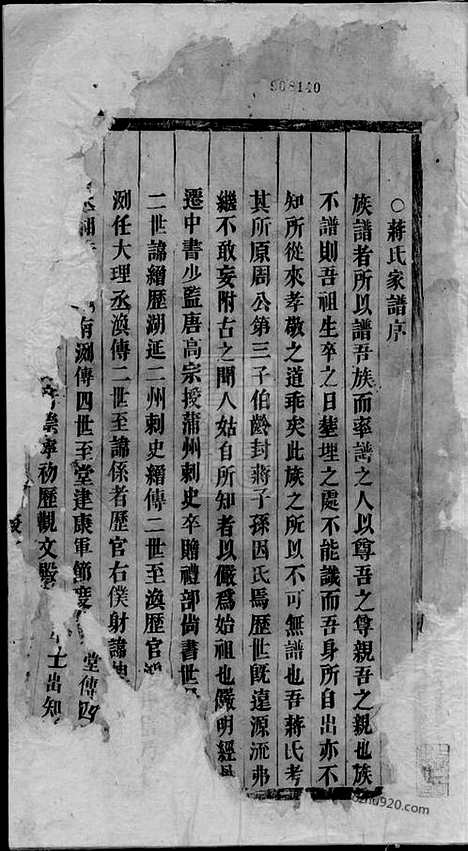 908140
○蔣氏家譜序
族譜者所以譜吾族而率譜之人以尊吾之尊親吾之親也族
不譜則吾祖生卒之日塟埋之處不能識而吾身所自出亦不
知所從來孝敬之道乖矣此族之所以不可無譜也吾蔣氏考
其所原周公第三子伯齡封蔣子孫因氏焉歷世既遠源流弗
繼不敢妄附古之聞人姑自所知者以儼爲始祖也儼明經
遷中書少監唐高宗授蒲州刺史卒贈禮部尚書世
二世諱繒歷湖延二州刺史繒傳二世至渙歷官
洌任大理丞渙傳二世至諱係者歷官右僕射諱
有洌傳四世至堂建康軍節度 堂傳四
崇寧初歷觀文殿 士出知
ozhu920.com